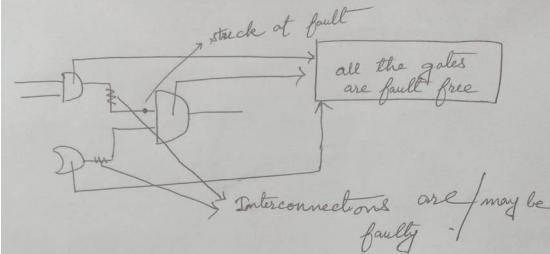 stuck at fault
all the gates
are fault free
Interconnections are / may be
faulty.